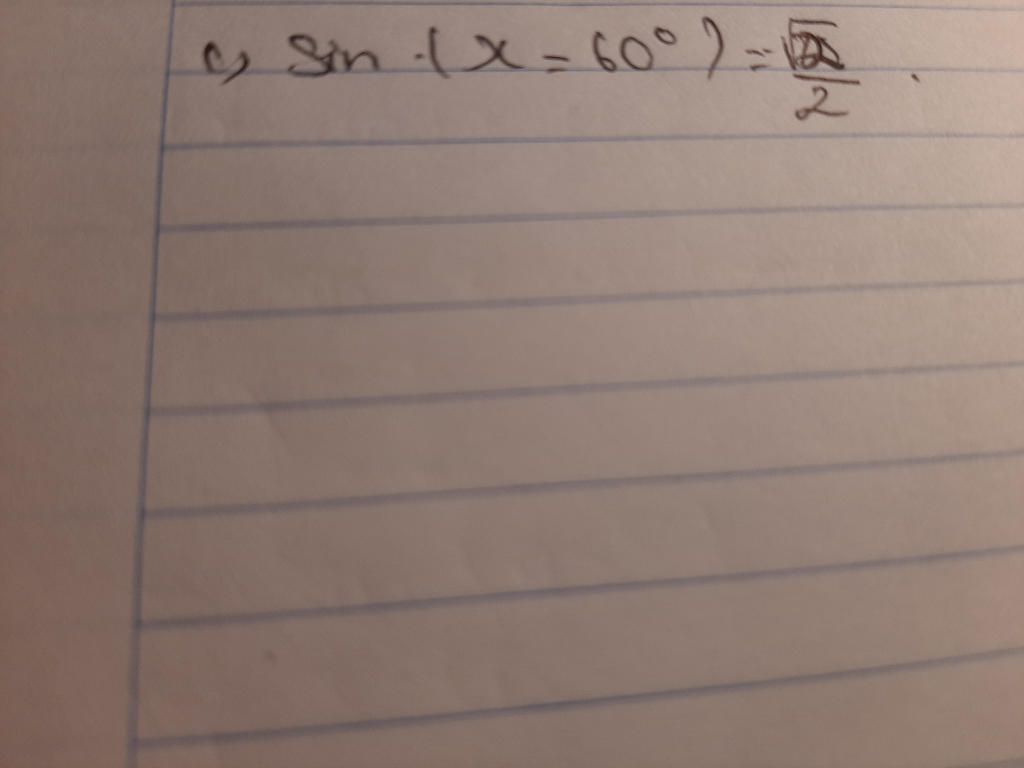 c, sin (x = 60°) = √ / 2 .